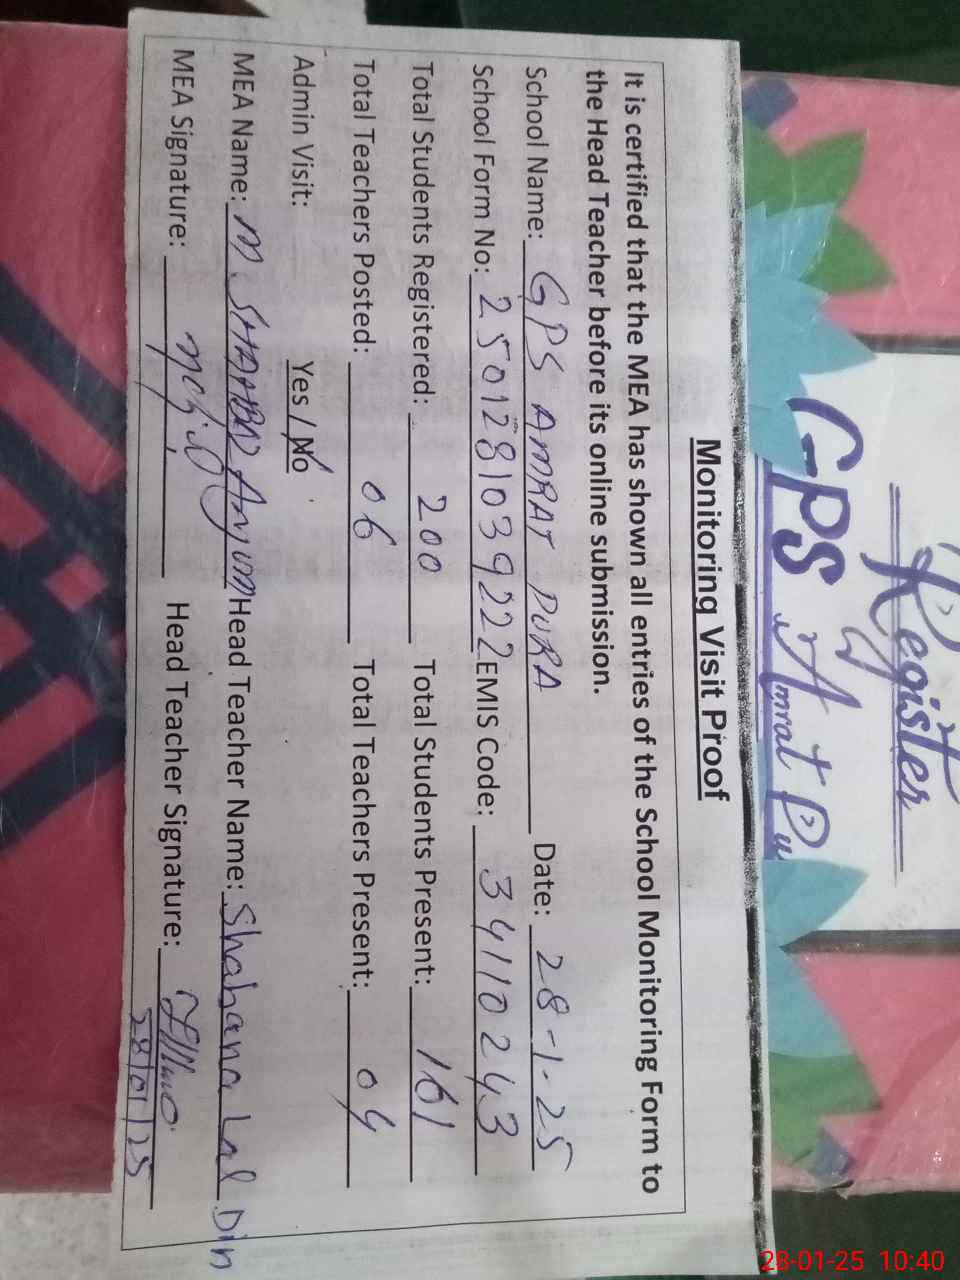 Register
GPS Amrat Pu
Monitoring Visit Proof
It is certified that the MEA has shown all entries of the School Monitoring Form to
the Head Teacher before its online submission.
School Name: GPS AMRAT PURA Date: 28-1-25
School Form No: 2501281039222 EMIS Code: 34110243
Total Students Registered: 200 Total Students Present: 161
Total Teachers Posted: 06 Total Teachers Present: 04
Admin Visit: Yes / No
MEA Name: M. SHAHBAZ Anjum Head Teacher Name: Shahana Lal Din
MEA Signature: Head Teacher Signature:
28/01/25
28-01-25 10:40